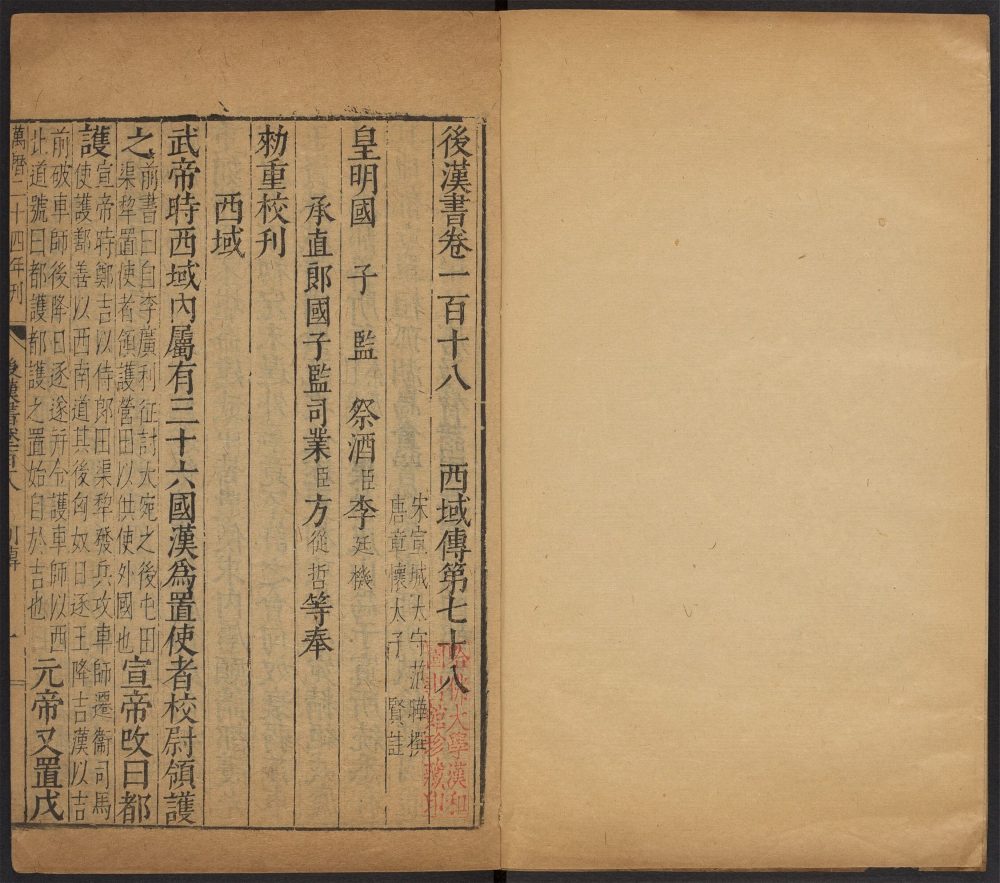 後漢書卷一百十八　西域傳第七十八
宋宣城太守范曄撰
唐章懷太子賢註
皇明國子監祭酒臣李廷機
承直郎國子監司業臣方從哲等奉
勑重校刊
西域
武帝時西域內屬有三十六國漢爲置使者校尉領護
之前書曰自李廣利征討大宛之後屯田
渠犂置使者領護營田以供使外國也宣帝改曰都
護宣帝時鄭吉以侍郎田渠犂發兵攻車師遷衞司馬
使護鄯善以西南道其後匈奴日逐王降吉漢以吉
前破車師後降日逐遂并令護車師以西
北道號曰都護都護之置始自於吉也元帝又置戊
萬曆二十四年刊
後漢書卷一百十八　列傳　一
哈佛大學漢和
圖書館珍藏印